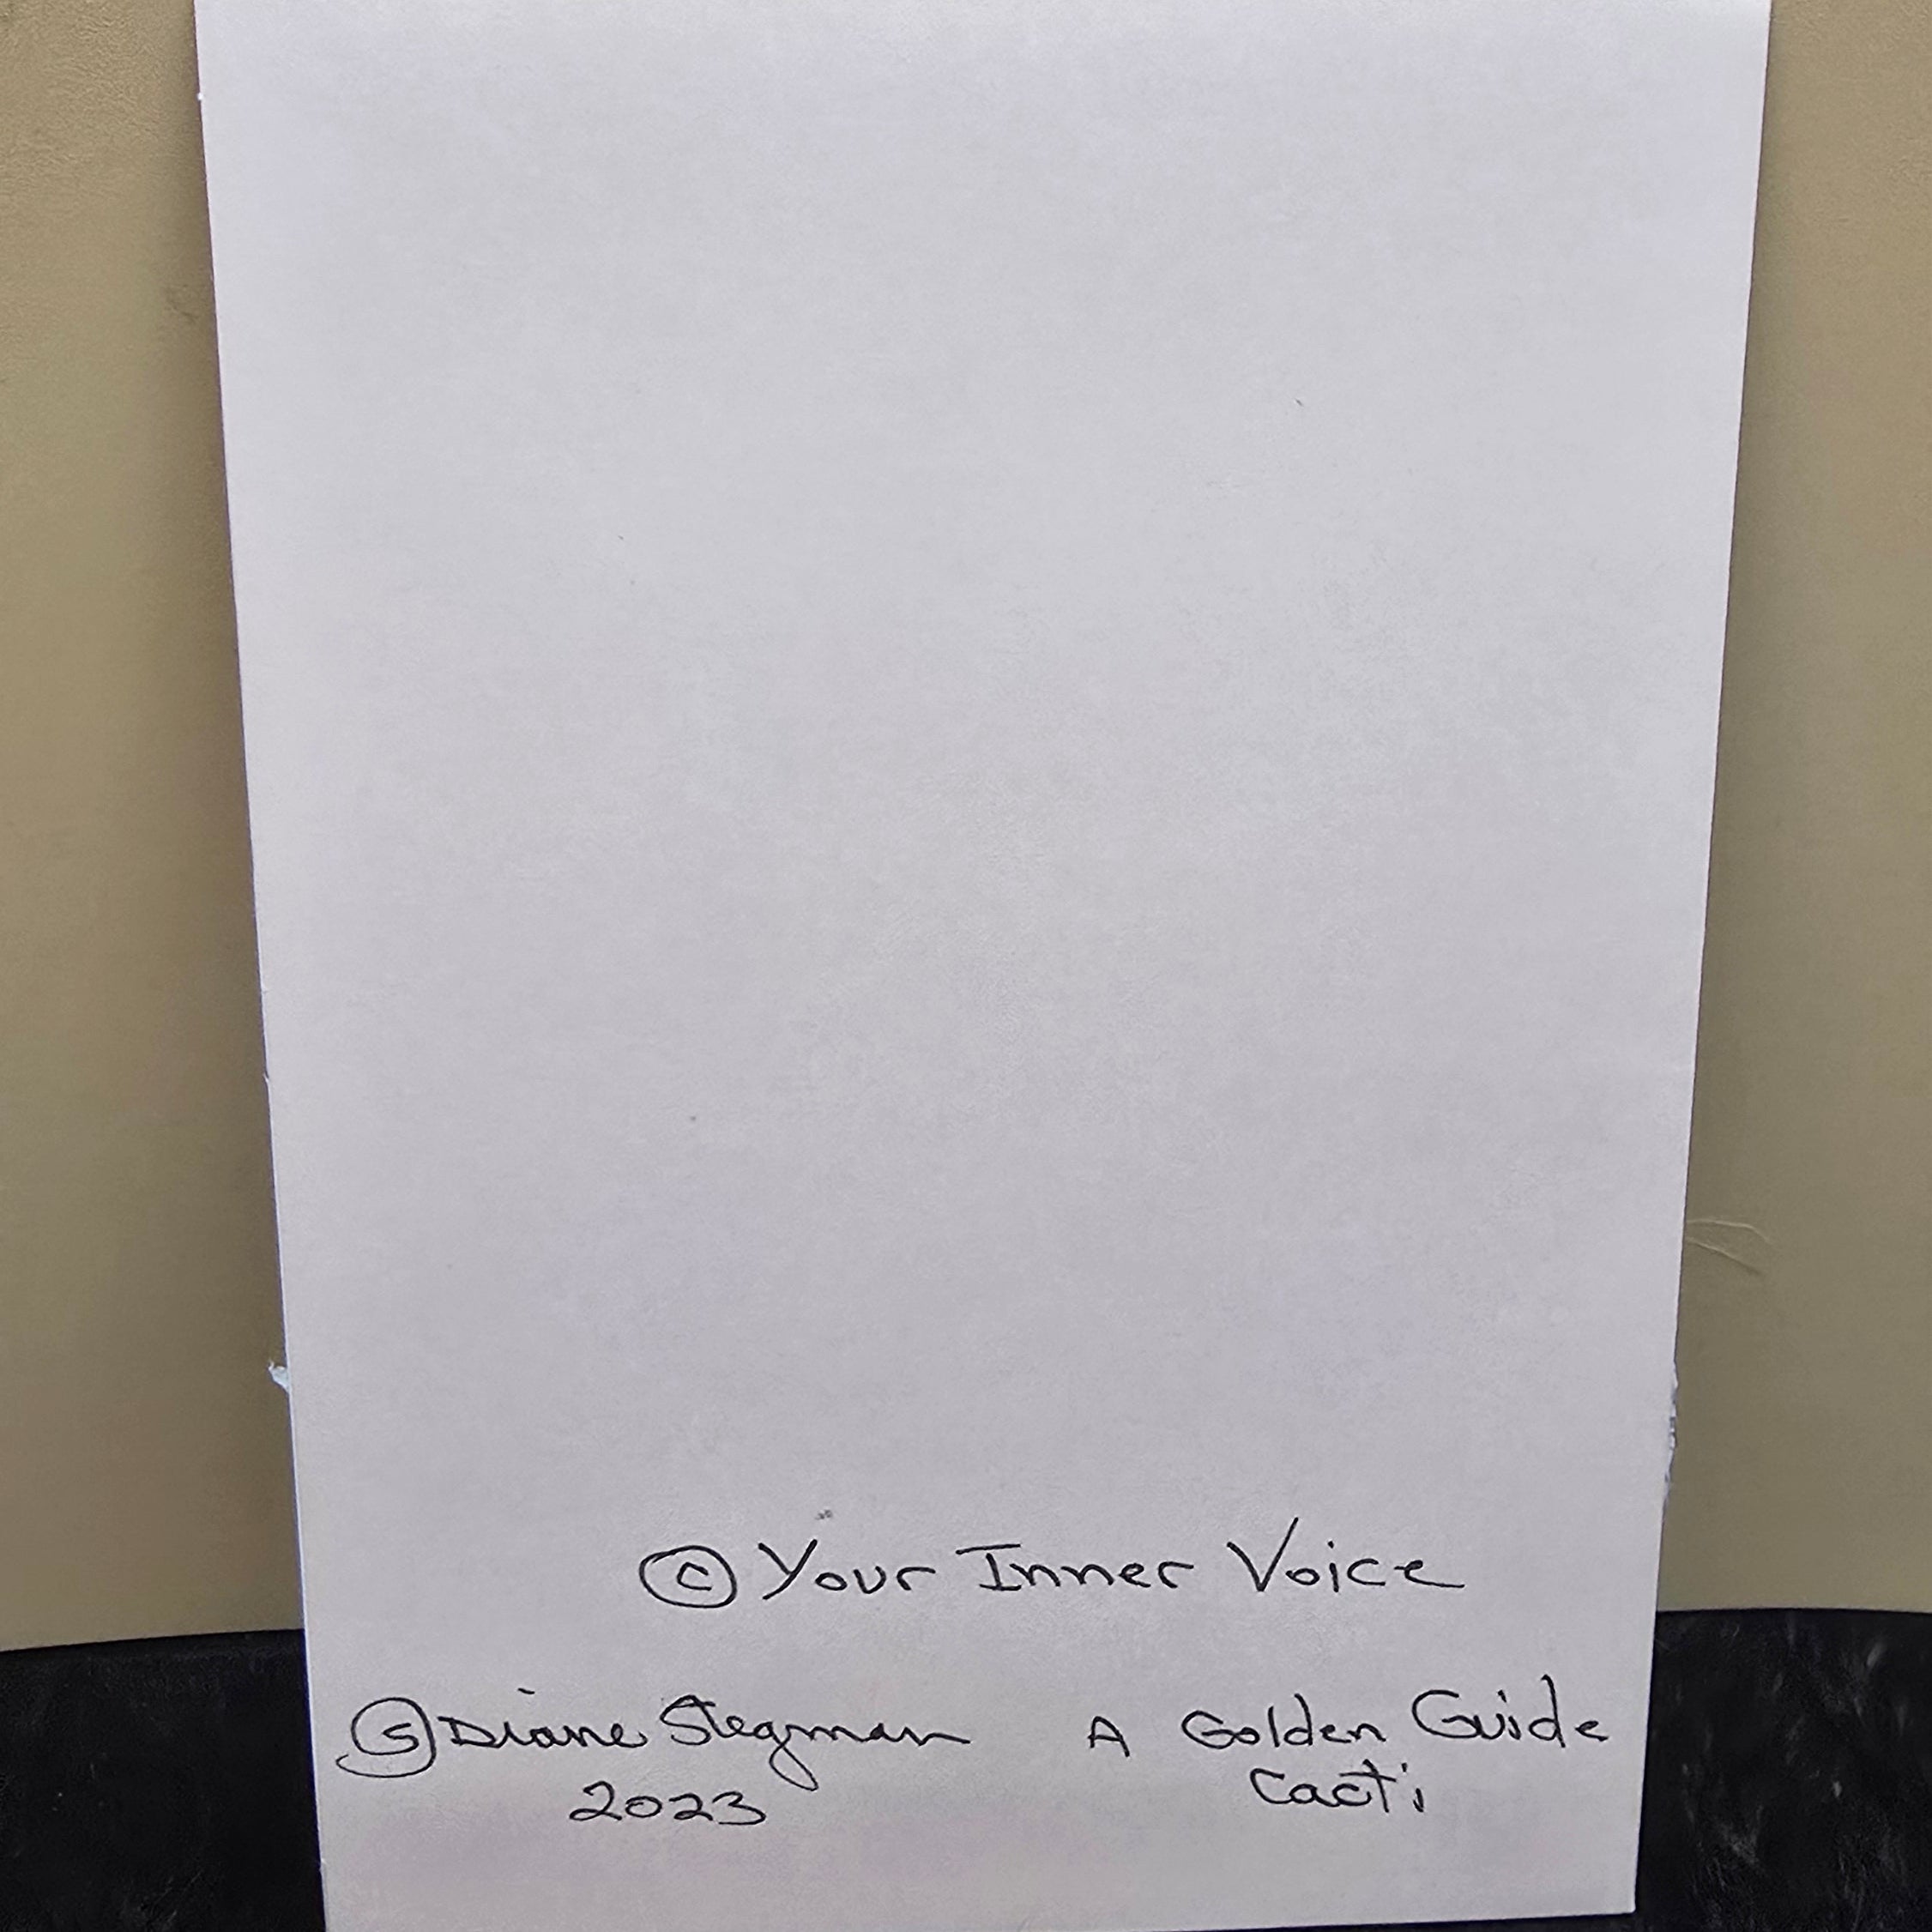 © Your Inner Voice
Ⓢ Diane Stegman A Golden Guide
2023 Cacti